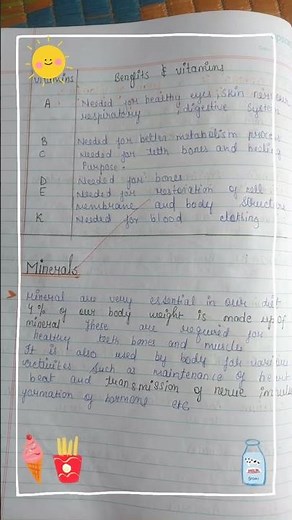 Vitamins Benefits & vitamins
A Needed for healthy eyes, skin nervous
respiratory, digestive system
B Needed for better metabolism process
C Needed for teeth bones and healing
Purpose.
D Needed for bones
E Needed for restoration of cell
membrane and body structure
K Needed for blood clotting
Minerals
mineral are very essential in our diet
4% of our body weight is made up of
mineral These are required for
healthy teeth bones and muscles
It is also used by body for various
activities such as maintenance of heart
beat and transmission of nerve impulse
formation of hormone etc